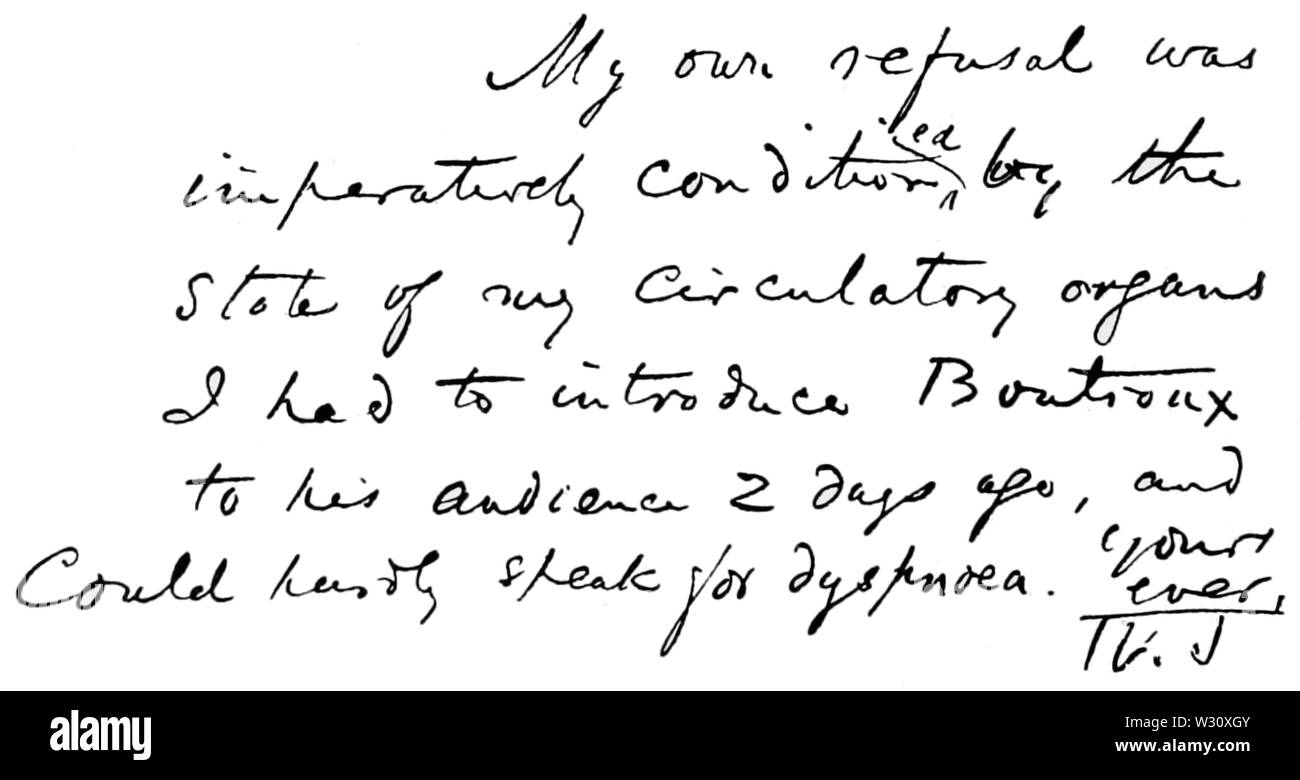 My own refusal was
imperatively conditioned by the
state of my circulatory organs
I had to introduce Boutroux
to his audience 2 days ago, and
Could hardly speak for dyspnoea.
yours
ever,
W. J
alamy
Image ID: W30XGY
www.alamy.com